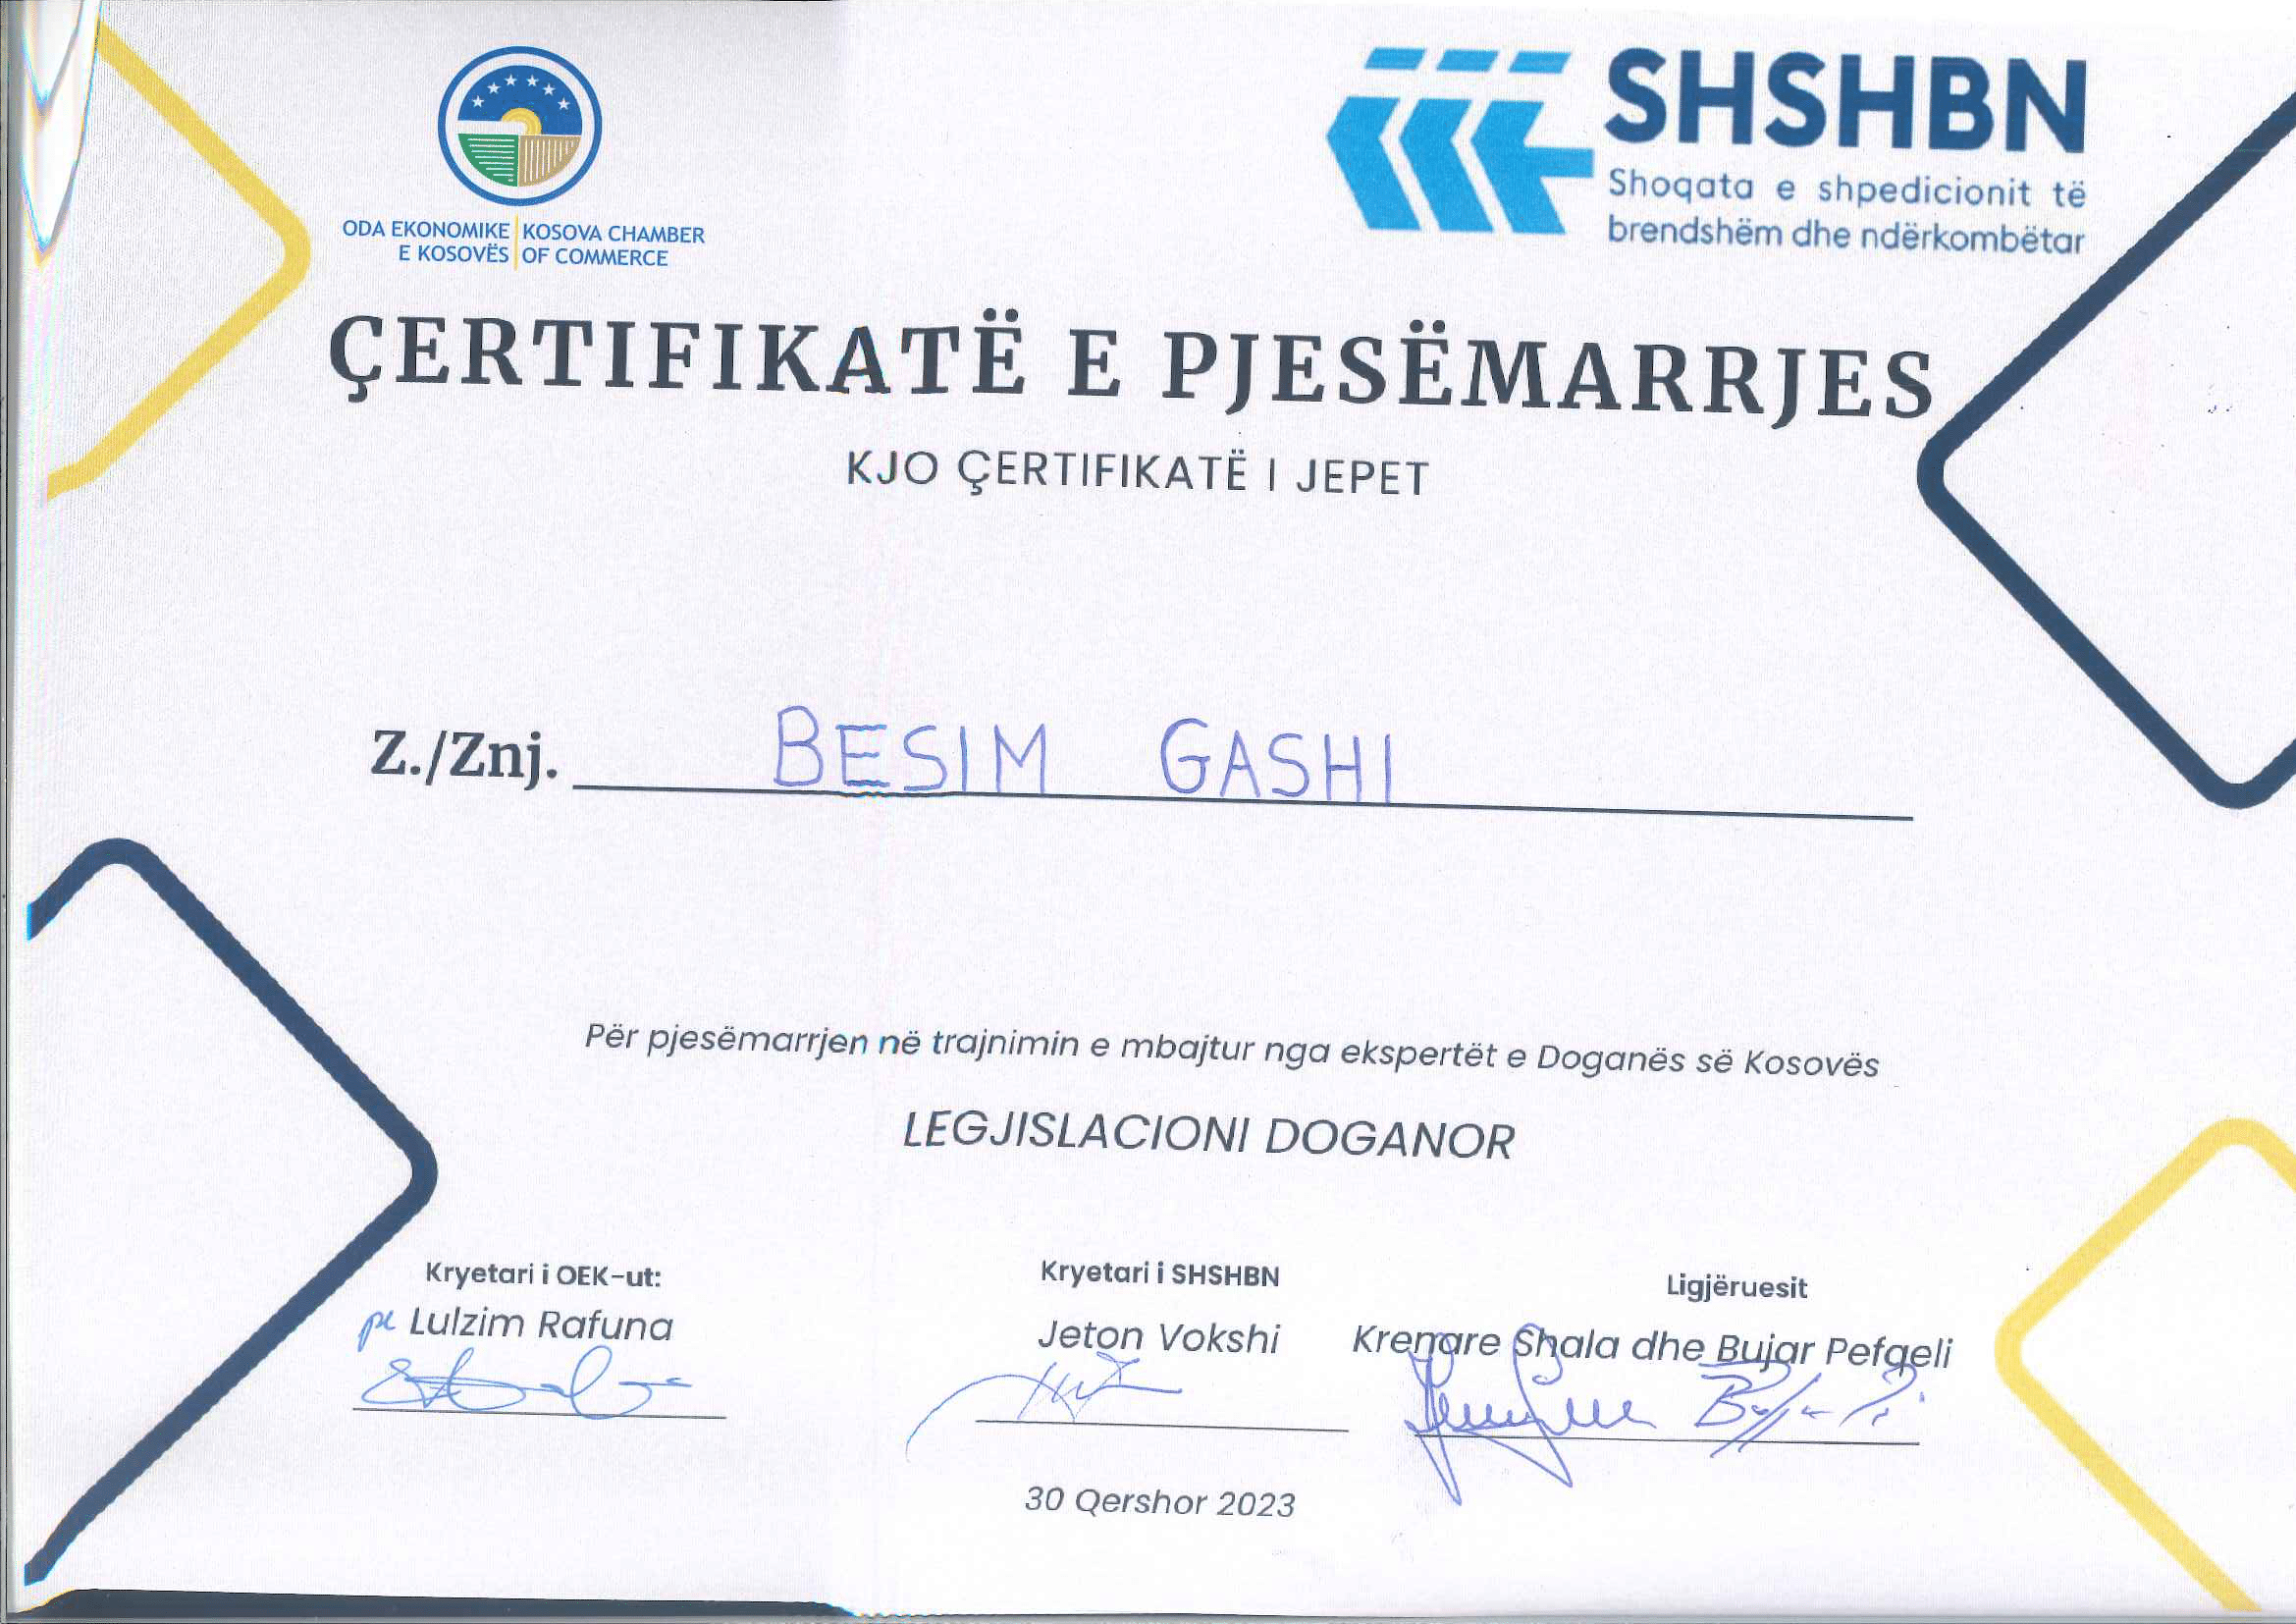 ODA EKONOMIKE
E KOSOVËS
KOSOVA CHAMBER
OF COMMERCE
SHSHBN
Shoqata e shpedicionit të
brendshëm dhe ndërkombëtar
ÇERTIFIKATË E PJESËMARRJES
KJO ÇERTIFIKATË I JEPET
Z./Znj. BESIM GASHI
Për pjesëmarrjen në trajnimin e mbajtur nga ekspertët e Doganës së Kosovës
LEGJISLACIONI DOGANOR
Kryetari i OEK-ut:
Lulzim Rafuna
Kryetari i SHSHBN
Jeton Vokshi
Ligjëruesit
Krenare Shala dhe Bujar Pefqeli
30 Qershor 2023